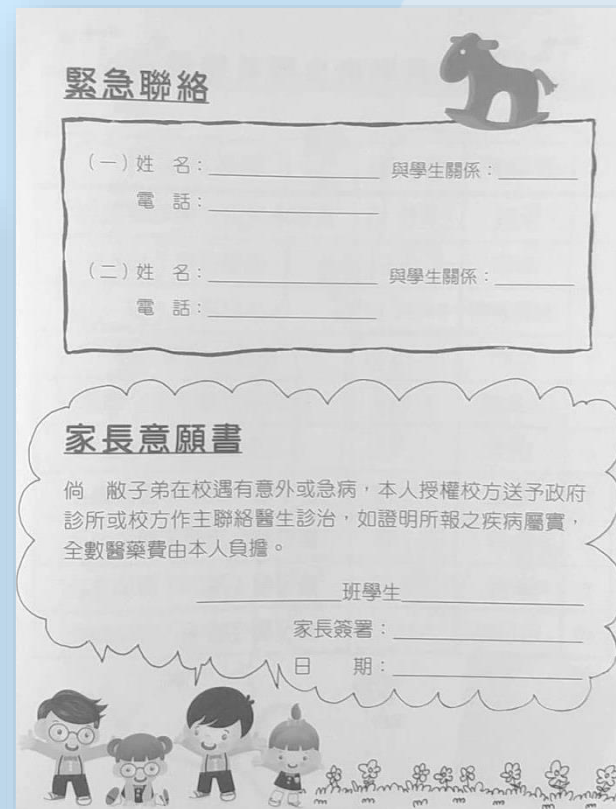 緊急聯絡
（一）姓 名：＿＿＿＿＿＿＿＿ 與學生關係：＿＿＿＿
電 話：＿＿＿＿＿＿＿＿
（二）姓 名：＿＿＿＿＿＿＿＿ 與學生關係：＿＿＿＿
電 話：＿＿＿＿＿＿＿＿
家長意願書
倘 敝子弟在校遇有意外或急病，本人授權校方送予政府
診所或校方作主聯絡醫生診治，如證明所報之疾病屬實，
全數醫藥費由本人負擔。
＿＿＿＿＿＿＿班學生＿＿＿＿＿＿＿＿＿
家長簽署：＿＿＿＿＿＿＿＿＿
日 期：＿＿＿＿＿＿＿＿＿